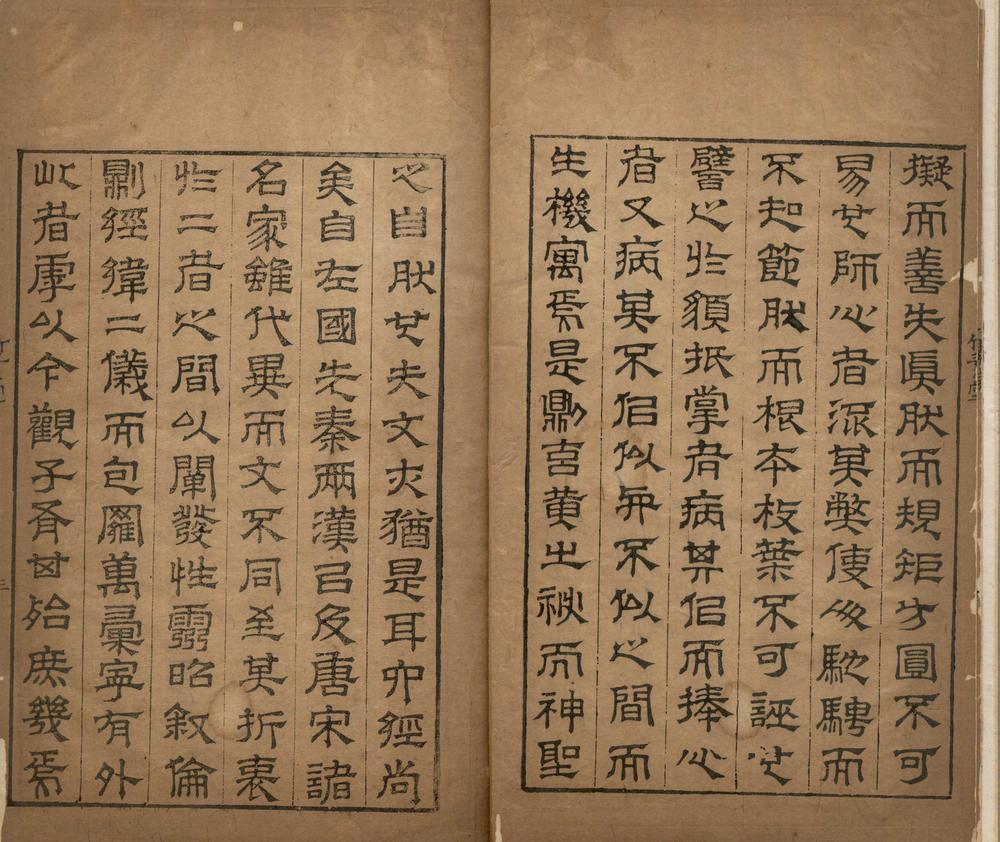 擬而善失真肰而規矩方圓不可
易也師心者泥其弊使人馳騁而
不知節肰而根本枝葉不可誣也
譬之於貌抵掌者病其佀而捧心
者又病其不佀似與不似之間而
生機寓焉是則黃之祕而神聖
之自肰也夫文亦猶是耳六經尚
矣自左國先秦兩漢㠯及唐宋諸
名家雖代異而文不同至其折衷
於二者之間以闡發性靈昭敘倫
則經緯二儀而包羅萬彙寧有外
此者虖以今觀子脊其殆庶幾焉